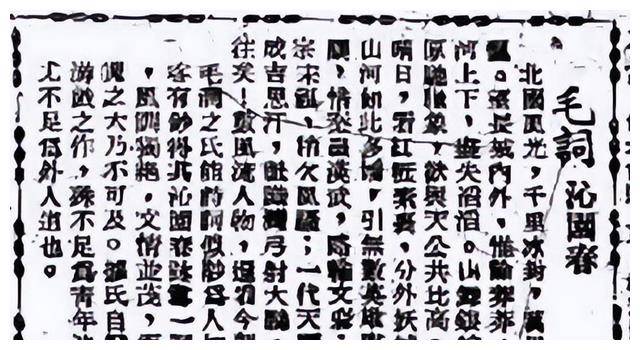 毛詞 沁園春
北國風光,千里冰封,萬
飄。望長城內外,惟餘莽莽,
河上下,盡失滔滔。山舞銀
原馳臘象,欲與天公共比高
晴日,看紅裝素裹,分外妖
山河如此多嬌,引無數英雄
,惜秦皇漢武,略輸文采,
宗宋祖,稍欠風騷;一代天
成吉思汗,只識彎弓射大鵰
往矣!數風流人物,還看今朝
毛潤之氏能詩詞似鮮為人
客有鈔得其沁園春詠雪一
,風調獨絕,文情並茂,而
魄之大乃不可及。據氏自
游戲之作,殊不足為青年法
尤不足為外人道也。